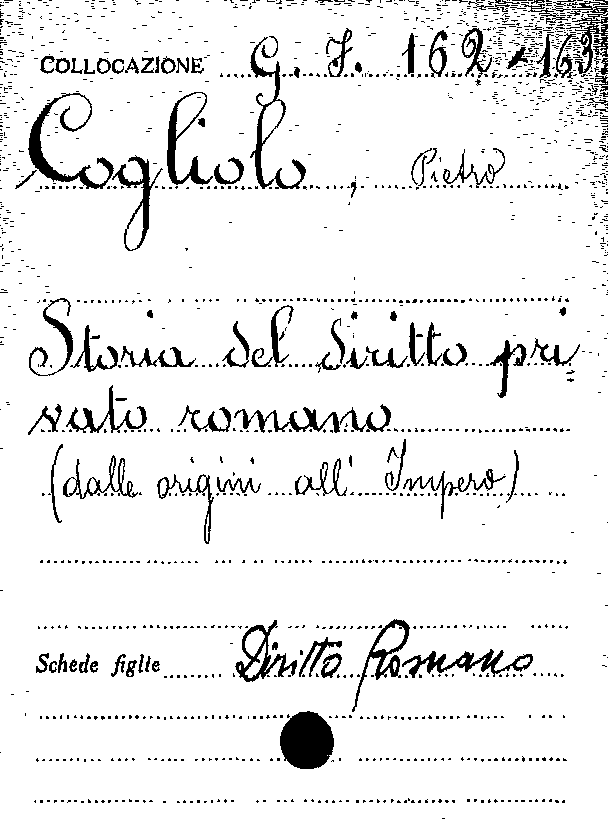 COLLOCAZIONE G. F. 162-163
Cogliolo, Pietro
Storia del diritto pri=
vato romano
(dalle origini all' Impero)
Schede figlie Diritto Romano